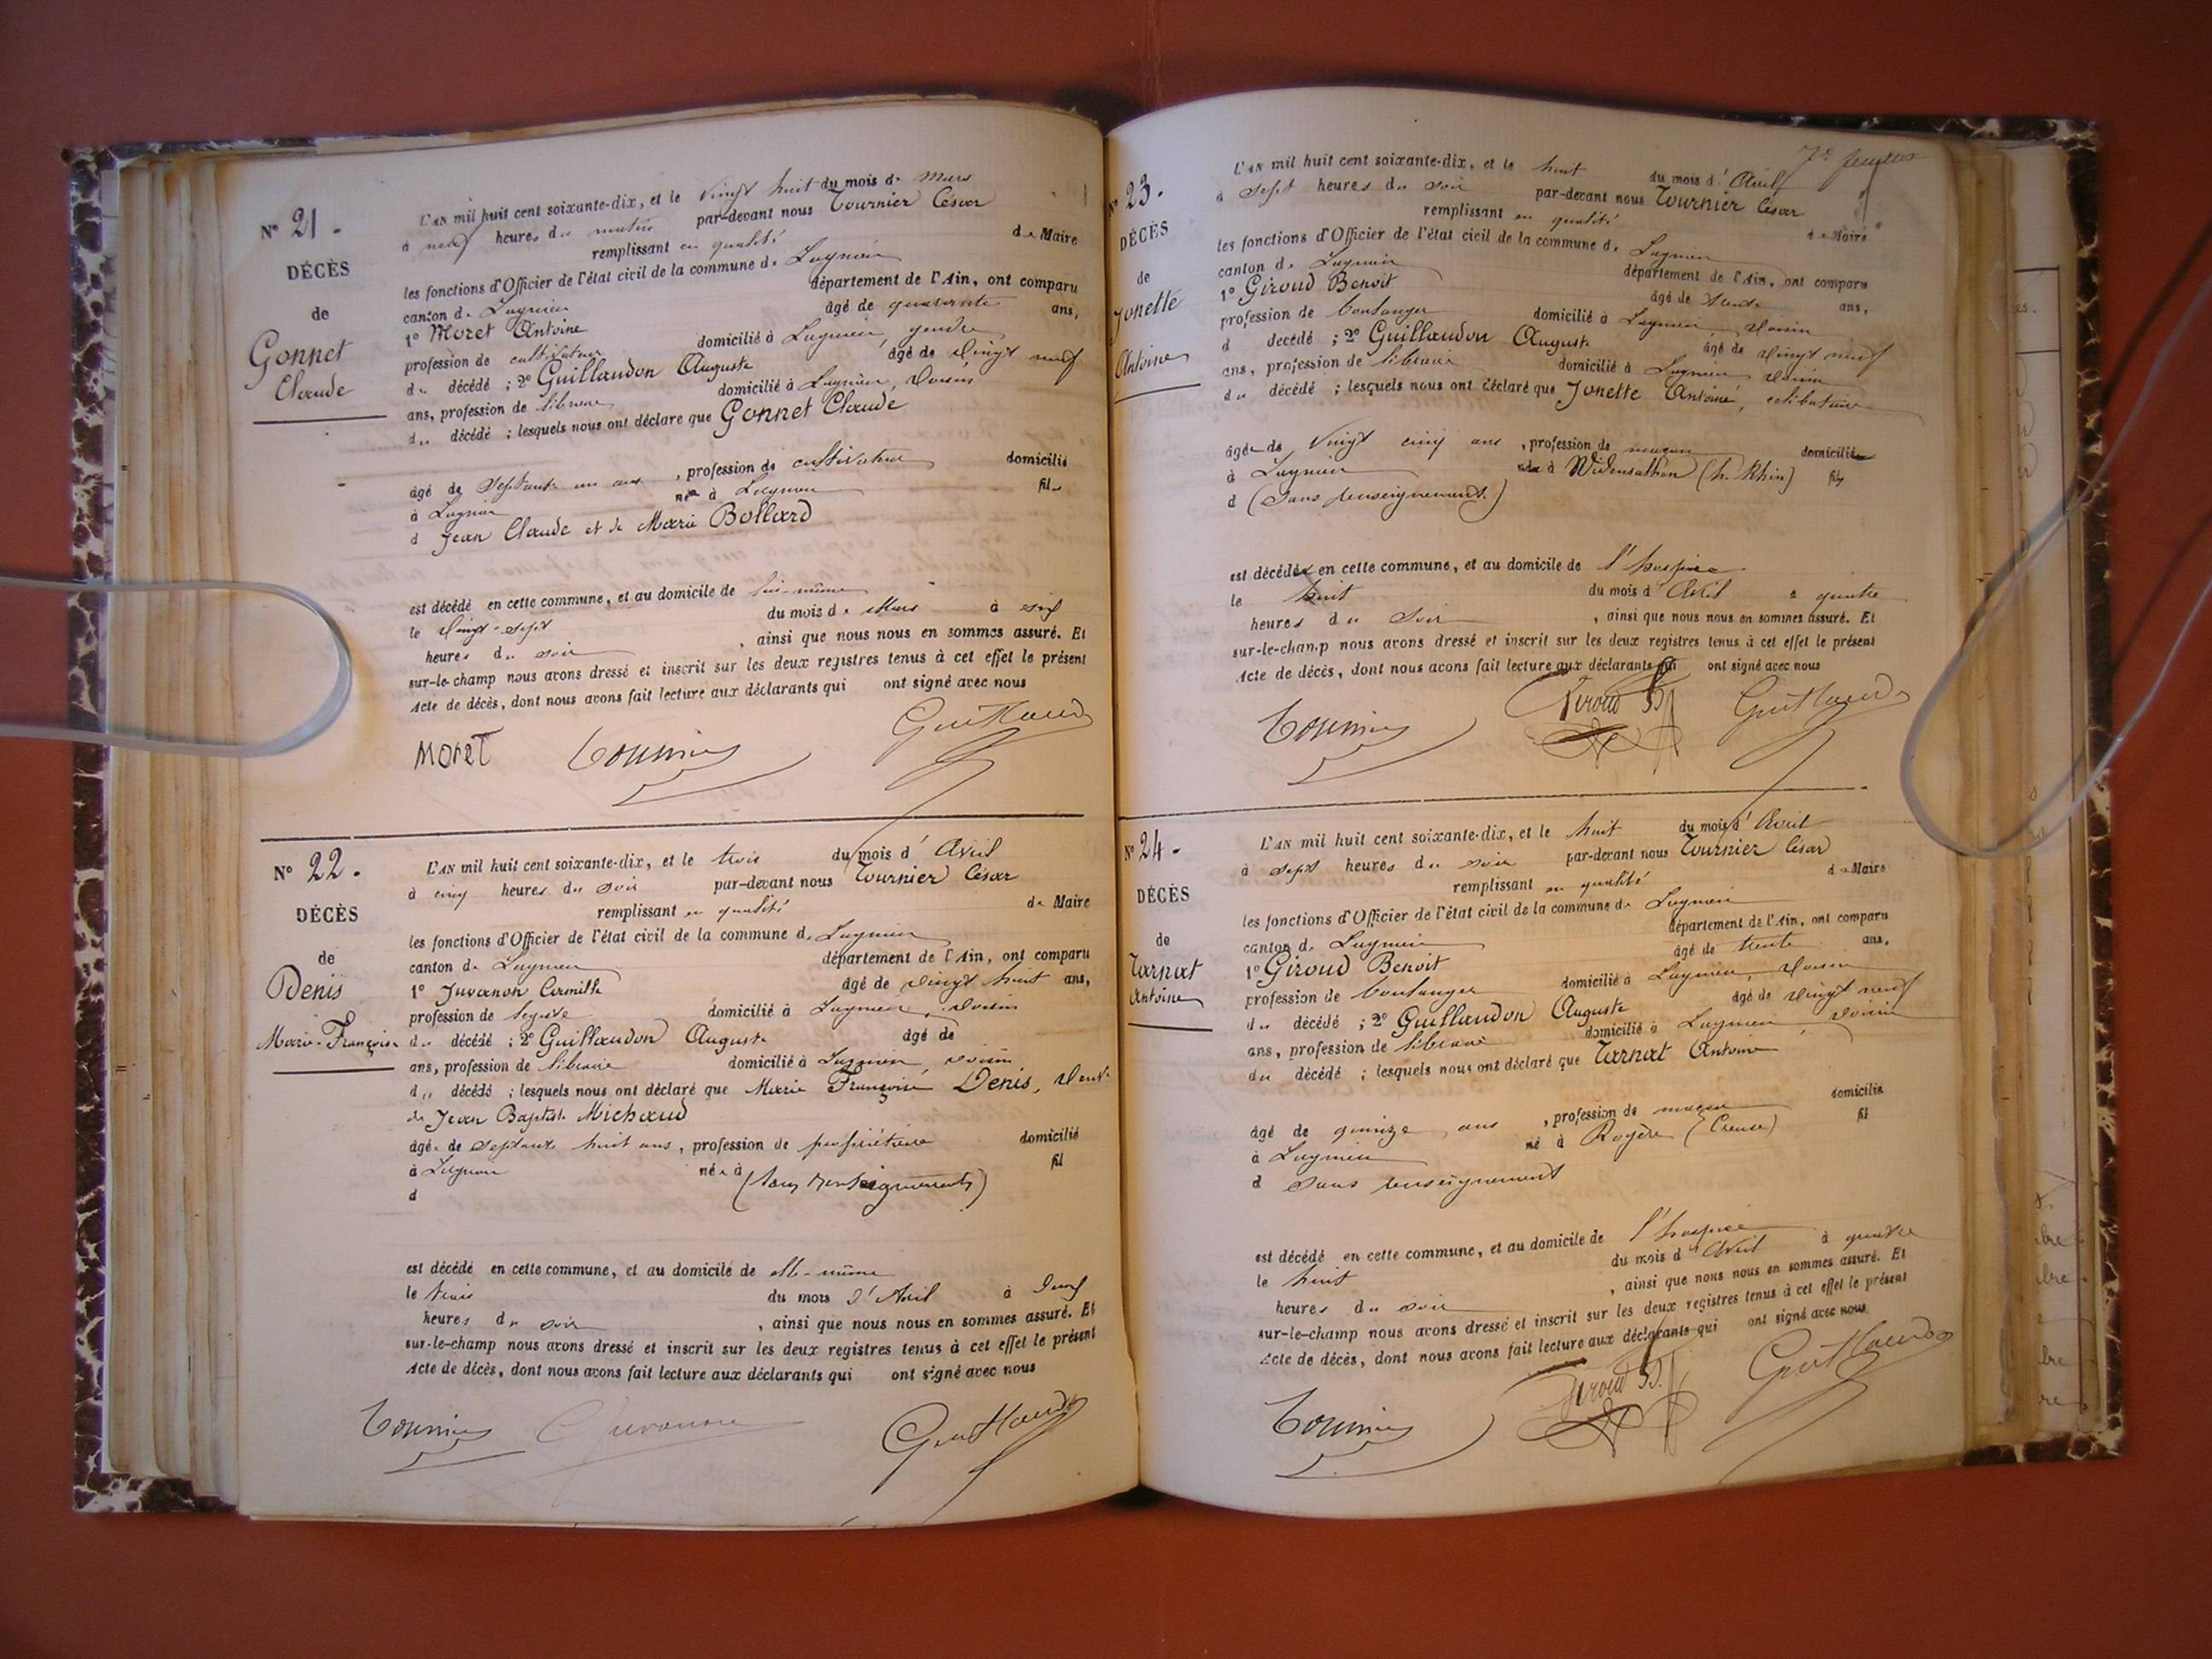 N° 21.
DÉCÈS
de
Gonnet
Claude
L'AN mil huit cent soixante-dix, et le vingt huit du mois de Mars
à neuf heures du matin par-devant nous Tournier César
remplissant en qualité de Maire
les fonctions d'Officier de l'état civil de la commune de Lagnieu
canton de Lagnieu département de l'Ain, ont comparu
1° Moret Antoine âgé de quarante ans,
profession de cultivateur domicilié à Lagnieu, gendre
du décédé ; 2° Guillaudon Auguste âgé de vingt neuf
ans, profession de libraire domicilié à Lagnieu, voisin
du décédé ; lesquels nous ont déclaré que Gonnet Claude
âgé de septante un ans, profession de cultivateur domicilié
à Lagnieu né à Lagnieu fils
d Jean Claude et de Marie Bollard
est décédé en cette commune, et au domicile de lui-même
le vingt-sept du mois de Mars à
heures du soir, ainsi que nous nous en sommes assuré. Et
sur-le-champ nous avons dressé et inscrit sur les deux registres tenus à cet effet le présent
Acte de décès, dont nous avons fait lecture aux déclarants qui ont signé avec nous
MoreT Tournier Guillaud
N° 22.
DÉCÈS
de
Denis
Marie-Françoise
L'AN mil huit cent soixante-dix, et le trois du mois d'Avril
à cinq heures du soir par-devant nous Tournier César
remplissant en qualité de Maire
les fonctions d'Officier de l'état civil de la commune de Lagnieu
canton de Lagnieu département de l'Ain, ont comparu
1° Juvanon Camille âgé de vingt huit ans,
profession de domicilié à Lagnieu, voisin
du décédé ; 2° Guillaudon Auguste âgé de
ans, profession de libraire domicilié à Lagnieu voisin
d décédé ; lesquels nous ont déclaré que Marie Françoise Denis, veuve
de Jean Baptiste Michaud
âgée de septante huit ans, profession de propriétaire domicilié
à Lagnieu née à (sans renseignements) fil
d
est décédé en cette commune, et au domicile de elle-même
le trois du mois d'Avril à
heures du soir, ainsi que nous nous en sommes assuré. Et
sur-le-champ nous avons dressé et inscrit sur les deux registres tenus à cet effet le présent
Acte de décès, dont nous avons fait lecture aux déclarants qui ont signé avec nous
Tournier Juvanon Guillaud
7e feuillet
N° 23.
DÉCÈS
de
Jonette
Antoine
L'AN mil huit cent soixante-dix, et le huit du mois d'Avril
à sept heures du soir par-devant nous Tournier César
remplissant en qualité de Maire
les fonctions d'Officier de l'état civil de la commune de Lagnieu
canton de Lagnieu département de l'Ain, ont comparu
1° Giroud Benoit âgé de trente ans,
profession de boulanger domicilié à Lagnieu, voisin
d décédé ; 2° Guillaudon Auguste âgé de vingt neuf
ans, profession de libraire domicilié à Lagnieu voisin
du décédé ; lesquels nous ont déclaré que Jonette Antoine, célibataire
âgé de vingt cinq ans, profession de maçon domicilié
à Lagnieu né à Widensathon (h. Rhin) fils
d (sans renseignements)
est décédé en cette commune, et au domicile de l'hospice
le huit du mois d'Avril à quatre
heures du soir, ainsi que nous nous en sommes assuré. Et
sur-le-champ nous avons dressé et inscrit sur les deux registres tenus à cet effet le présent
Acte de décès, dont nous avons fait lecture aux déclarants qui ont signé avec nous
Tournier Giroud B Guillaud
N° 24.
DÉCÈS
de
Tarnat
Antoine
L'AN mil huit cent soixante-dix, et le huit du mois d'Avril
à sept heures du soir par-devant nous Tournier César
remplissant en qualité de Maire
les fonctions d'Officier de l'état civil de la commune de Lagnieu
canton de Lagnieu département de l'Ain, ont comparu
1° Giroud Benoit âgé de trente ans,
profession de boulanger domicilié à Lagnieu, voisin
du décédé ; 2° Guillaudon Auguste âgé de vingt neuf
ans, profession de libraire domicilié à Lagnieu, voisin
du décédé ; lesquels nous ont déclaré que Tarnat Antoine
âgé de quinze ans, profession de maçon domicilié
à Lagnieu né à Royère (Creuse) fil
d sans renseignement
est décédé en cette commune, et au domicile de l'hospice
le huit du mois d'Avril à quatre
heures du soir, ainsi que nous nous en sommes assuré. Et
sur-le-champ nous avons dressé et inscrit sur les deux registres tenus à cet effet le présent
Acte de décès, dont nous avons fait lecture aux déclarants qui ont signé avec nous
Tournier Giroud B. Guillaud